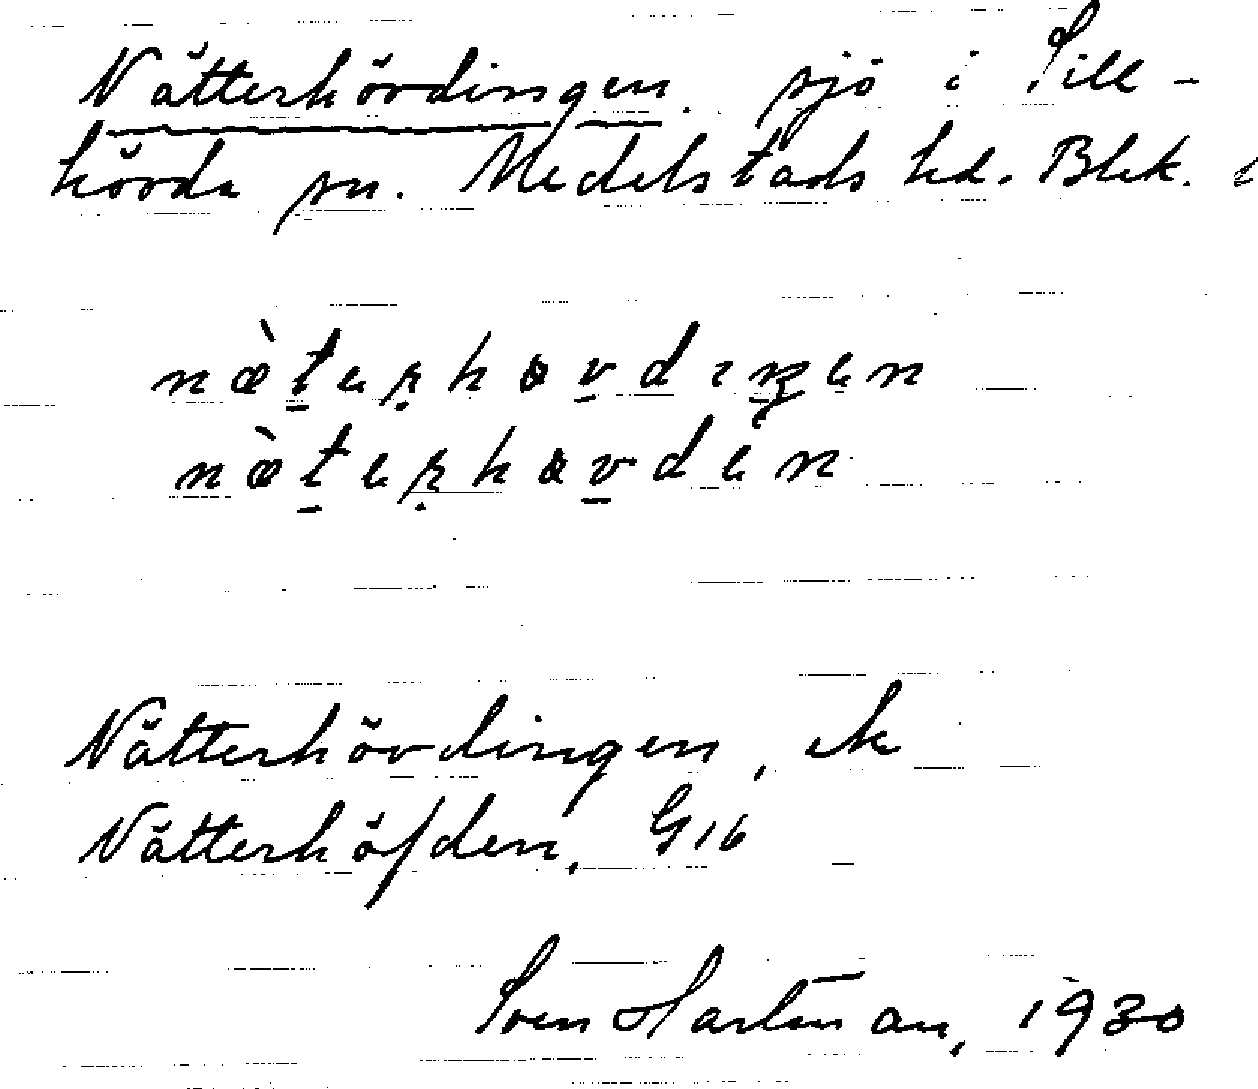 Nätterhövdingen. sjö i Sill-
hövda sn. Medelstads hd. Blek.
næ̀terhøvdiŋen
næ̀terhøvden
Nätterhövdingen, ek
Nätterhöfden, G16
Sven Hartman, 1930